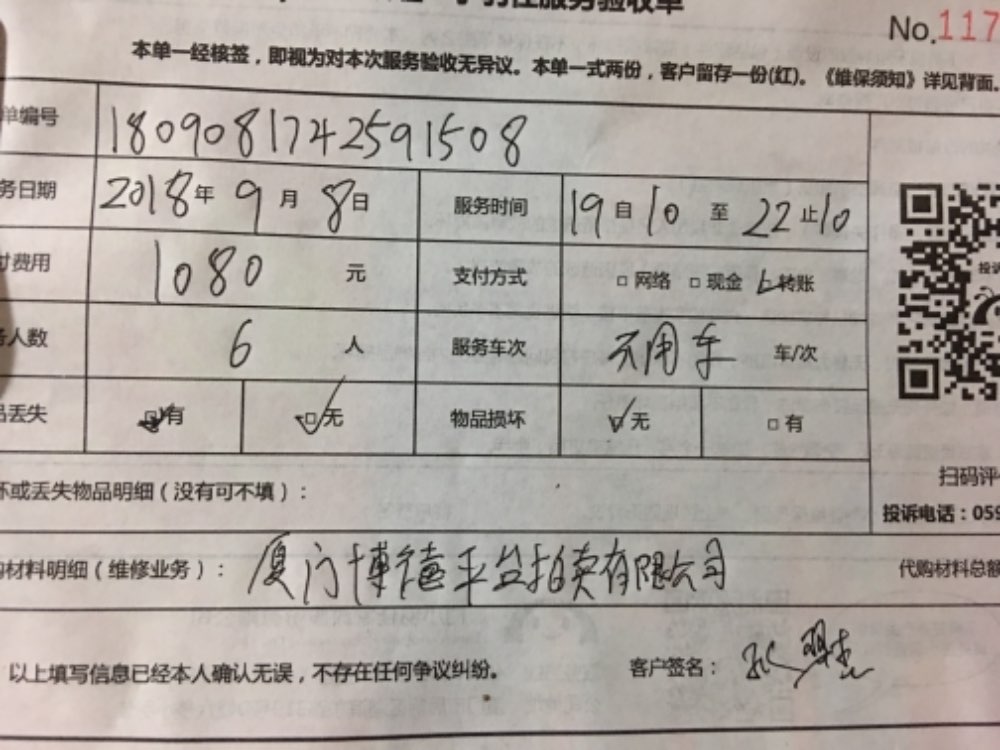 服务验收单
No.117
本单一经核签，即视为对本次服务验收无异议。本单一式两份，客户留存一份(红)。《维保须知》详见背面。
单编号 1809081742591508
务日期 2018年 9月 8日 服务时间 19自10至22止10
付费用 1080 元 支付方式 □网络 □现金 转账
务人数 6 人 服务车次 不用车 车/次
品丢失 有 无 物品损坏 无 □有
坏或丢失物品明细（没有可不填）：
扫码评
投诉电话：059
购材料明细（维修业务）： 厦门博德平益拍卖有限公司 代购材料总额
以上填写信息已经本人确认无误，不存在任何争议纠纷。 客户签名：